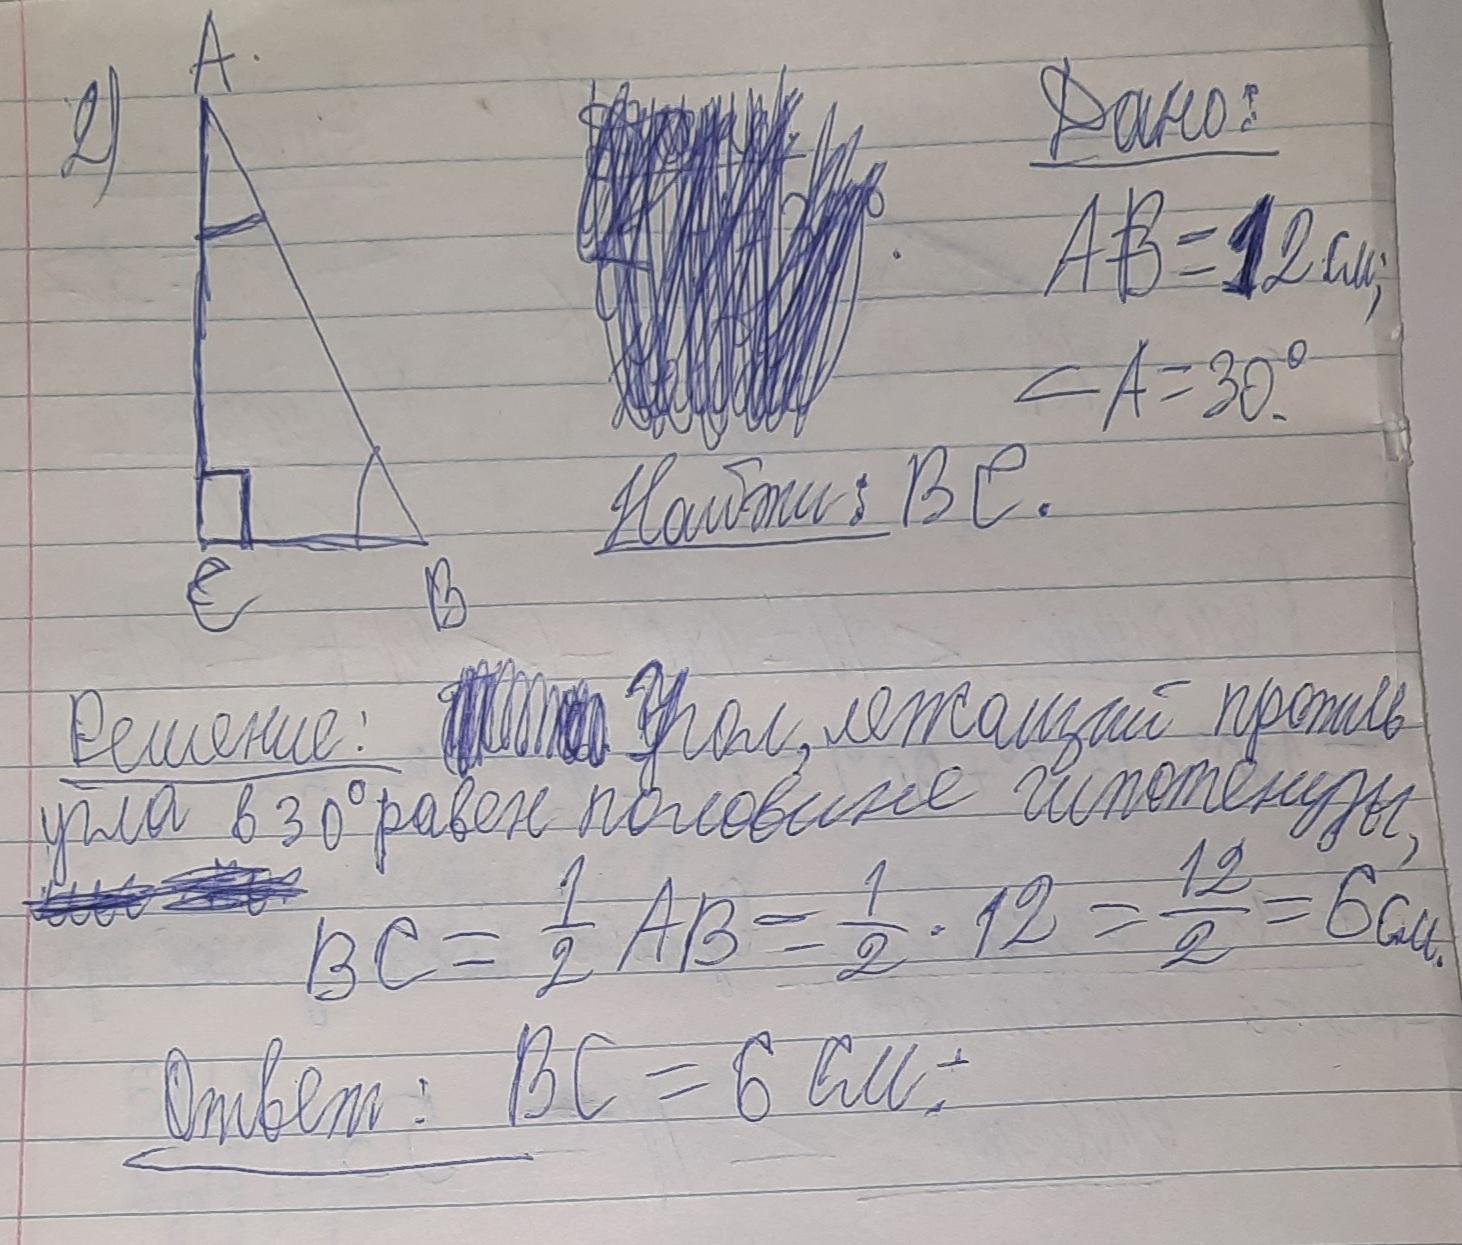 2)
A.
Дано:
AB = 12 см;
∠A = 30°.
Найти: BC.
C
B
Решение: Угол, лежащий против
угла в 30° равен половине гипотенузы,
BC = 1/2 AB = 1/2 · 12 = 12/2 = 6 см.
Ответ: BC = 6 см.